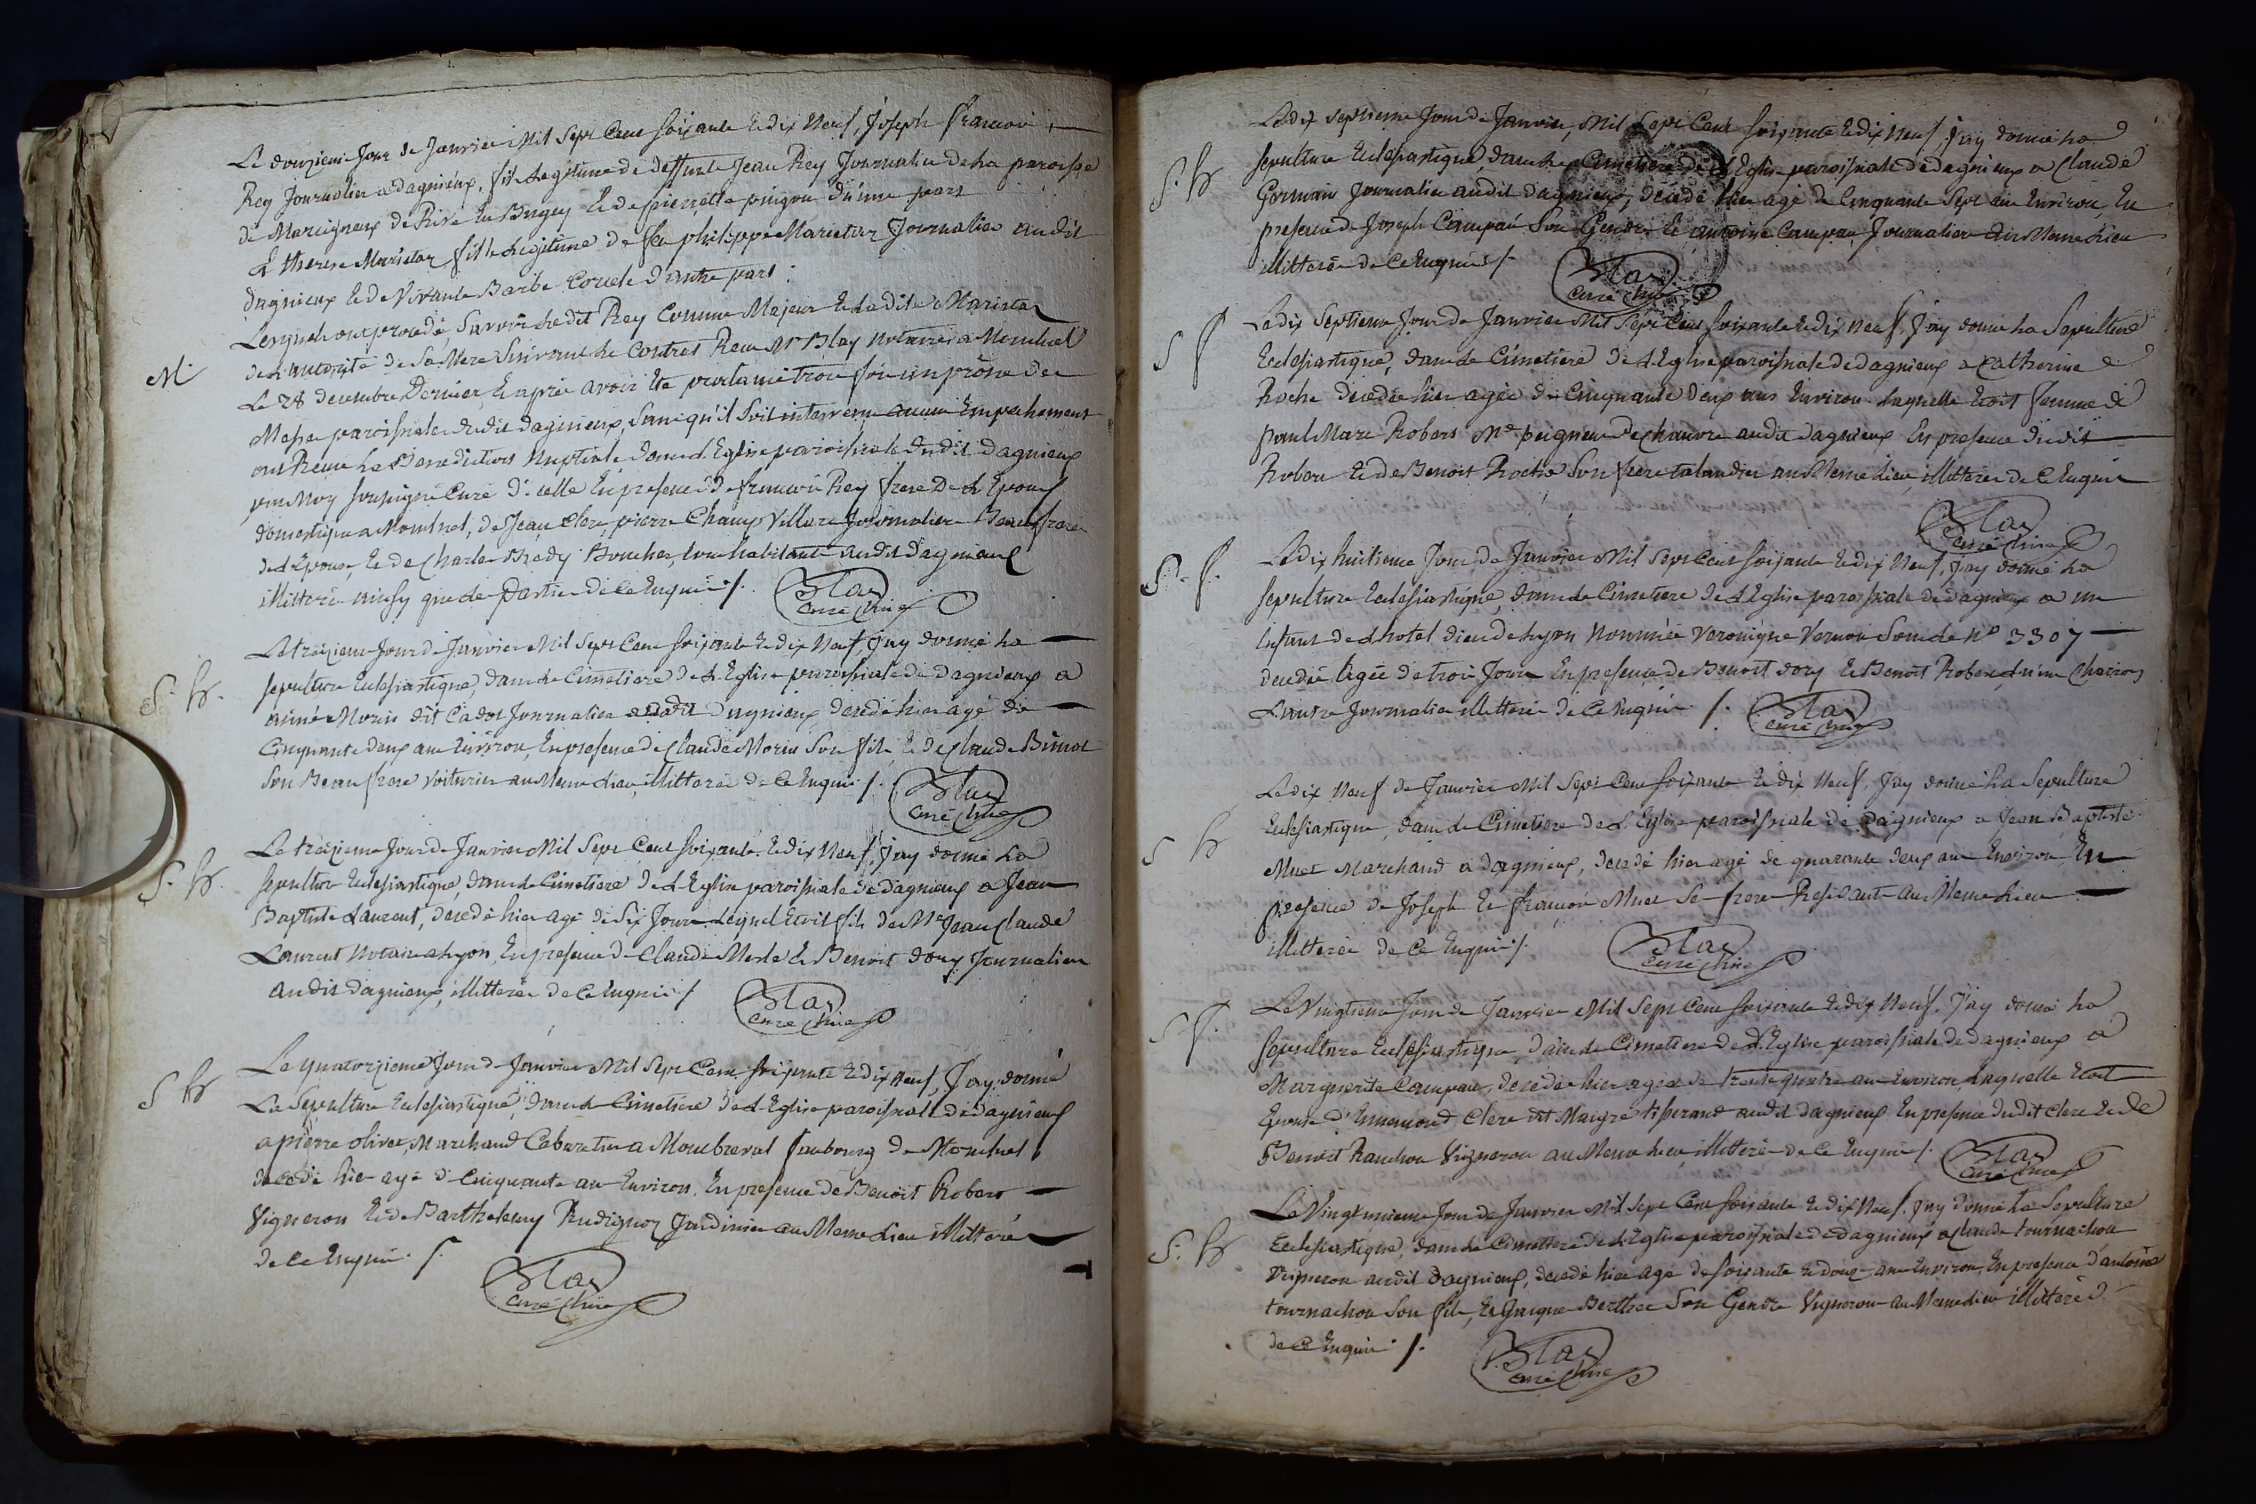 Le douzieme Jour de Janvier Mil Sept Cent soixante & dix Neuf, Joseph francoi
Rey Journalier a dagnieux, fils Legitime de deffunt Jean Rey Journalier de La paroisse
de Marcigneux de Rive En Bugey & de pierrette d'une part
& therese Marietar fille Legitime de feu philippe Marietar Journalier audit
dagnieux & de Vivante Barbe d'autre part :
Lesquels ont procedé, Savoir Ledit Rey Comme Majeur & Ladite Marietar
de L'autorité de Sa Mere Suivant Le Contrat Recu Mr Blay Notaire a Montluel
M.
Le 28 Decembre Dernier, & aprés avoir Eté proclamé trois fois au prône de
Messe paroissiale dudit dagnieux, Sans qu'il Soit intervenu aucun Empechement
ont Recu La Benediction Nuptiale dans L'Eglise paroissiale dudit dagnieux
par Moy Soussigné Curé d'icelle En presence de francoi Rey frere De L'Epoux
domestique a Montluel, de Jean Clere, pierre Champ Villard Journalier Beaufrere
de L'Epouse, & de Charles Bredy Boucher, tous habitants audit dagnieux
illitteré ainsy que Les Parties de ce Enquis /.
Blay
Curé
Le treizieme Jour de Janvier Mil Sept Cent soixante & dix Neuf, J'ay donné La
S. h.
sepulture Eclesiastique, dans Le Cimetiere de L'Eglise paroissiale de dagnieux a
aimé Morin dit Cadot Journalier audit Dagnieux decedé hier agé de
Cinquante deux ans Environ, En presence de Claude Morin Son fils, & de Claude Bimot
Son Beaufrere voiturier au Meme Lieu, illitteré de Ce Enquis /.
Blay
Curé
Le treizieme Jour de Janvier Mil Sept Cent soixante & dix Neuf, J'ay donné La
S. h.
sepulture Eclesiastique, dans Le Cimetiere de L'Eglise paroissiale de dagnieux a Jean
Baptiste Laurent, decedé hier agé de Six Jours Lequel Etoit fils de Mr Jean Claude
Laurent Notaire a Lyon, En presence de Claude Merle & Benoit dory Journalier
audit dagnieux, illitteré de Ce Enquis /
Blay
Curé
Le quatorzieme Jour de Janvier Mil Sept Cent soixante & dix Neuf, J'ay donné
S h
La Sepulture Eclesiastique, dans Le Cimetiere de L'Eglise paroissiale de dagnieux
a pierre olivet, Marchand Cabaretier a Montbreval faubourg de Montluel
decedé hier agé de Cinquante ans Environ, En presence de Benoit Robert
Vigneron & de Barthelemy Rudignoz Jardinier au Meme Lieu illitteré
de Ce Enquis /.
Blay
Curé
Le dix Septieme Jour de Janvier Mil Sept Cent soixante & dix Neuf, J'ay donné La
S. h
sepulture Eclesiastique, dans Le Cimetiere de L'Eglise paroissiale de dagnieux a Claude
Germain Journalier audit dagnieux, decedé hier agé de Cinquante Sept ans Environ, En
presence de Joseph Campan Son Gendre & antoine Campan Journalier au Meme Lieu
illitteré de Ce Enquis /.
Blay
Curé
Le dix Septieme Jour de Janvier Mil Sept Cent soixante & dix Neuf, J'ay donné La Sepulture
S f
Eclesiastique, dans Le Cimetiere de L'Eglise paroissiale de dagnieux a Catherine
Roche decedée hier agée de Cinquante Deux ans Environ Laquelle Etoit femme de
paul Marc Robert Me peigneur De Chanvre audit dagnieux En presence dudit
Robert & de Benoit Roche Son frere au Meme Lieu, illitteré de Ce Enquis
Blay
Curé
S. f.
Le dix huitieme Jour de Janvier Mil Sept Cent soixante & dix Neuf, J'ay donné La
sepulture Eclesiastique, dans Le Cimetiere de L'Eglise paroissiale de dagnieux a un
Enfant de L'hotel dieu de Lyon Nommée Veronique Vernon Sous Le No 3307
decedée Agée de trois Jours En presence de Benoit dory & Benoit Robert, L'un Charron
L'autre Journalier illitteré de Ce Enquis /.
Blay
Curé
Le dix Neuf de Janvier Mil Sept Cent soixante & dix Neuf, J'ay donné La Sepulture
S h
Eclesiastique, dans Le Cimetiere de L'Eglise paroissiale de dagnieux a Jean Baptiste
Muet Marchand a dagnieux, decedé hier agé de quarante deux ans Environ En
presence de Joseph & francoi Muet Se frere Residant au Meme Lieu
illitteré de Ce Enquis /.
Blay
Curé
Le Vingtieme Jour de Janvier Mil Sept Cent soixante & dix Neuf, J'ay donné La
S. f.
sepulture Eclesiastique, dans Le Cimetiere de L'Eglise paroissiale de dagnieux a
Marguerite Campan, decedée hier agée de trente quatre ans Environ, Laquelle Etoit
Epouse d'Ennemond Clere dit Maigre tisserand audit dagnieux En presence dudit Clere & de
Benoit Ranchon Vigneron au Meme Lieu, illitteré de Ce Enquis /.
Blay
Curé
Le Vingt unieme Jour de Janvier Mil Sept Cent soixante & dix Neuf, J'ay donné La Sepulture
S. h
Eclesiastique, dans Le Cimetiere de L'Eglise paroissiale de dagnieux a Claude tournachon
Vigneron audit dagnieux, decedé hier agé de soixante & douze ans Environ, En presence d'antoine
tournachon Son fils, & Jacques Berthet Son Gendre Vigneron au Meme Lieu illitteré
de Ce Enquis /.
Blay
Curé